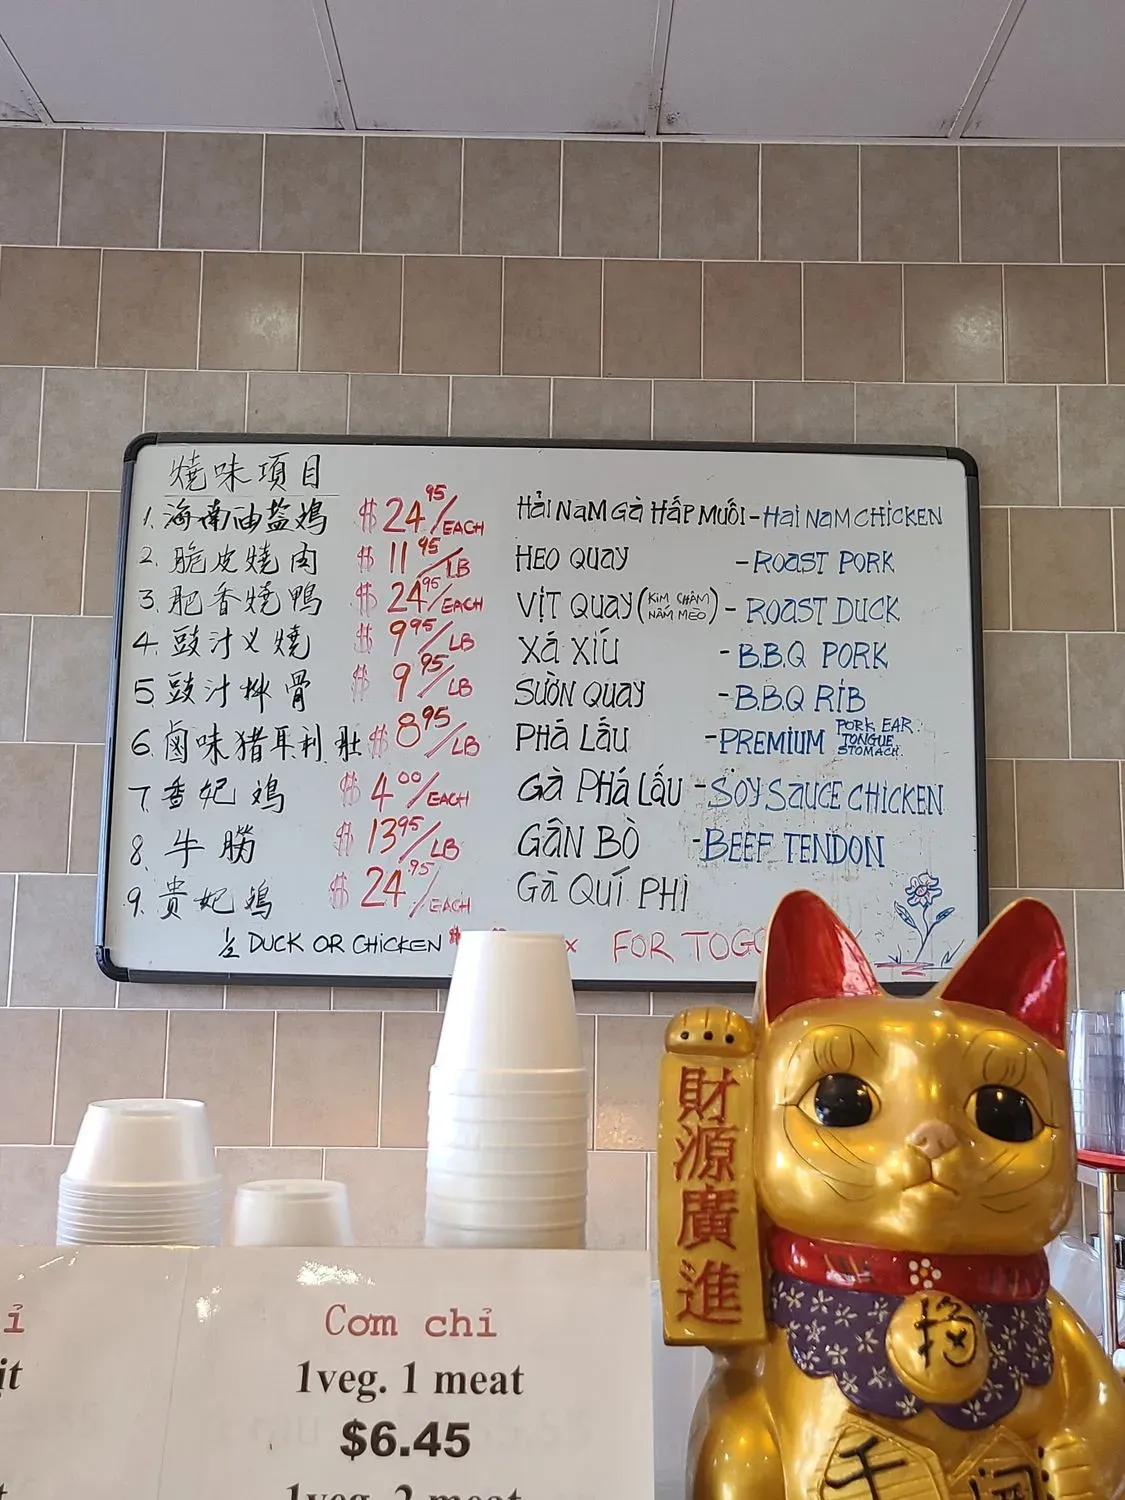 燒味項目
1. 海南油盐鸡 $24.95/EACH HảI NAM Gà HẤP MUốI - HaI NaM CHICKEN
2. 脆皮燒肉 $11.95/LB HEO QUAY - ROAST PORK
3. 肥香燒鴨 $24.95/EACH VỊT QUAY (KIM CHÂM NẤM MÈO) - ROAST DUCK
4. 豉汁义燒 $9.95/LB Xá XíU - B.B.Q PORK
5. 豉汁排骨 $9.95/LB SƯỜN QUAY - B.B.Q RIB
6. 鹵味猪耳利肚 $8.95/LB PHá LẤU - PREMIUM PORK EAR. TONGUE STOMACH.
7. 香妃鸡 $4.00/EACH Gà PHá LẤU - SOY SaUCE CHICKEN
8. 牛腩 $13.95/LB GÂN BÒ - BEEF TENDON
9. 貴妃鸡 $24.95/EACH Gà QUÍ PHI
½ DUCK OR CHICKEN FOR TOGO
財源廣進
Cơm chỉ
1veg. 1 meat
$6.45
1veg. 2 meat
千